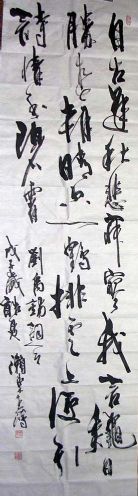 自古逢秋悲寂寥我言秋日
勝春朝晴空一鶴排雲上便引
詩情到碧霄
劉禹錫詞
戊子歲